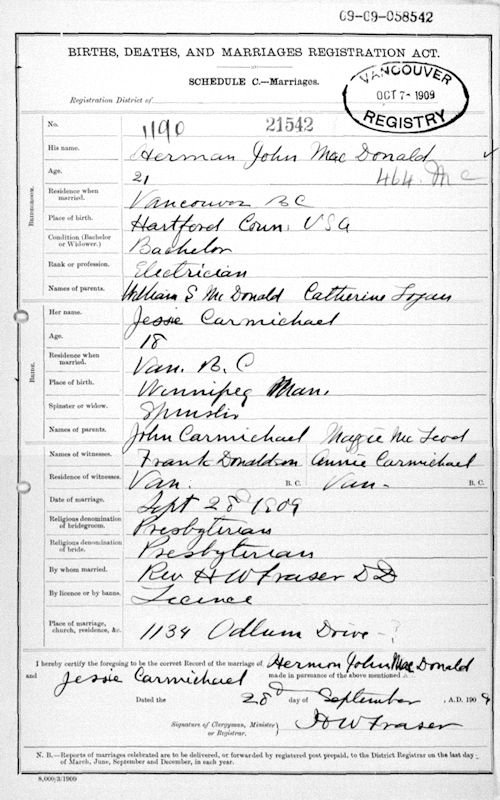 09-09-058542
BIRTHS, DEATHS, AND MARRIAGES REGISTRATION ACT.
SCHEDULE C.—Marriages.
VANCOUVER
OCT 7- 1909
REGISTRY
Registration District of
No. 1190 21542
Bridegroom.
His name. Herman John MacDonald
464 Mc
Age. 21
Residence when married. Vancouver BC
Place of birth. Hartford Conn. USA
Condition (Bachelor or Widower.) Bachelor
Rank or profession. Electrician
Names of parents. William S McDonald Catherine Logan
Bride.
Her name. Jessie Carmichael
Age. 18
Residence when married. Van. B.C
Place of birth. Winnipeg Man.
Spinster or widow. Spinster
Names of parents. John Carmichael Maggie McLeod
Names of witnesses. Frank Donaldson Annie Carmichael
Residence of witnesses. Van. B.C. Van- B.C.
Date of marriage. Sept 28th 1909
Religious denomination of bridegroom. Presbyterian
Religious denomination of bride. Presbyterian
By whom married. Rev H W Fraser DD
By licence or by banns. Licence
Place of marriage, church, residence, &c. 1134 Odlum Drive -?
I hereby certify the foregoing to be the correct Record of the marriage of Hermon John MacDonald
and Jessie Carmichael made in pursuance of the above mentioned A
Dated the 28th day of September, A.D. 1909
Signature of Clergyman, Minister, or Registrar. H W Fraser
N. B.—Reports of marriages celebrated are to be delivered, or forwarded by registered post prepaid, to the District Registrar on the last day
of March, June, September and December, in each year.
8,000/3/1909